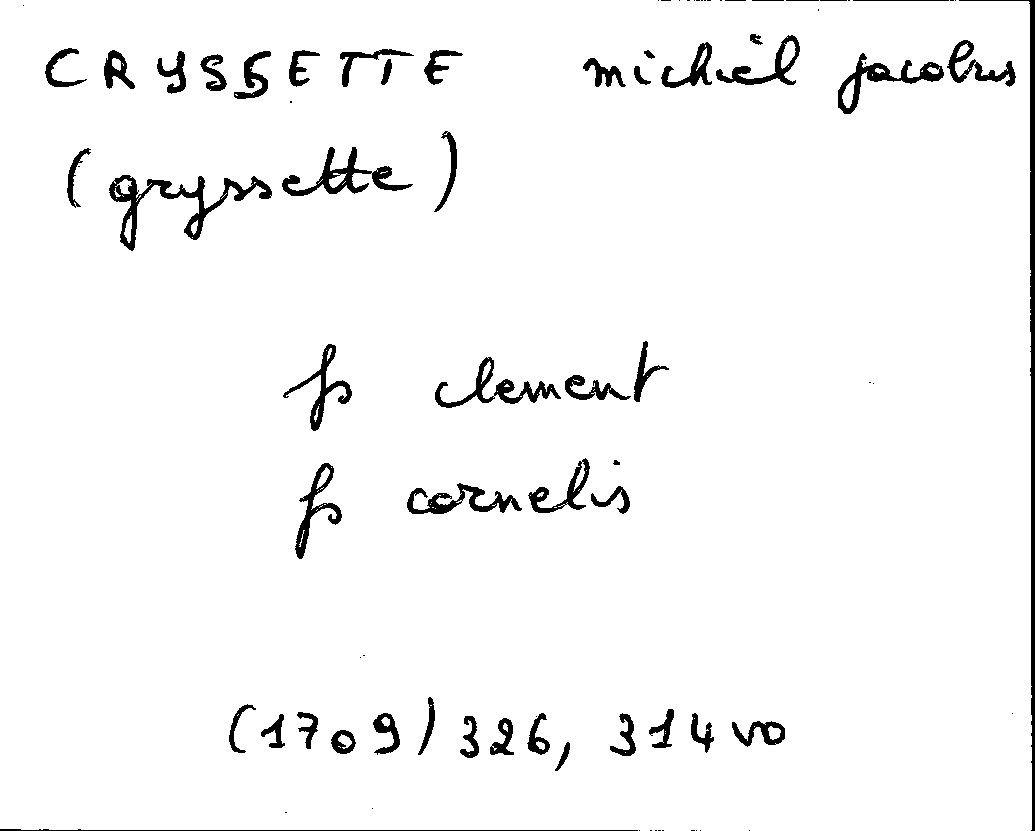 CRYSSETTE michiel jacobus
(gryssette)
fs clement
fs cornelis
(1709) 326, 314 vo